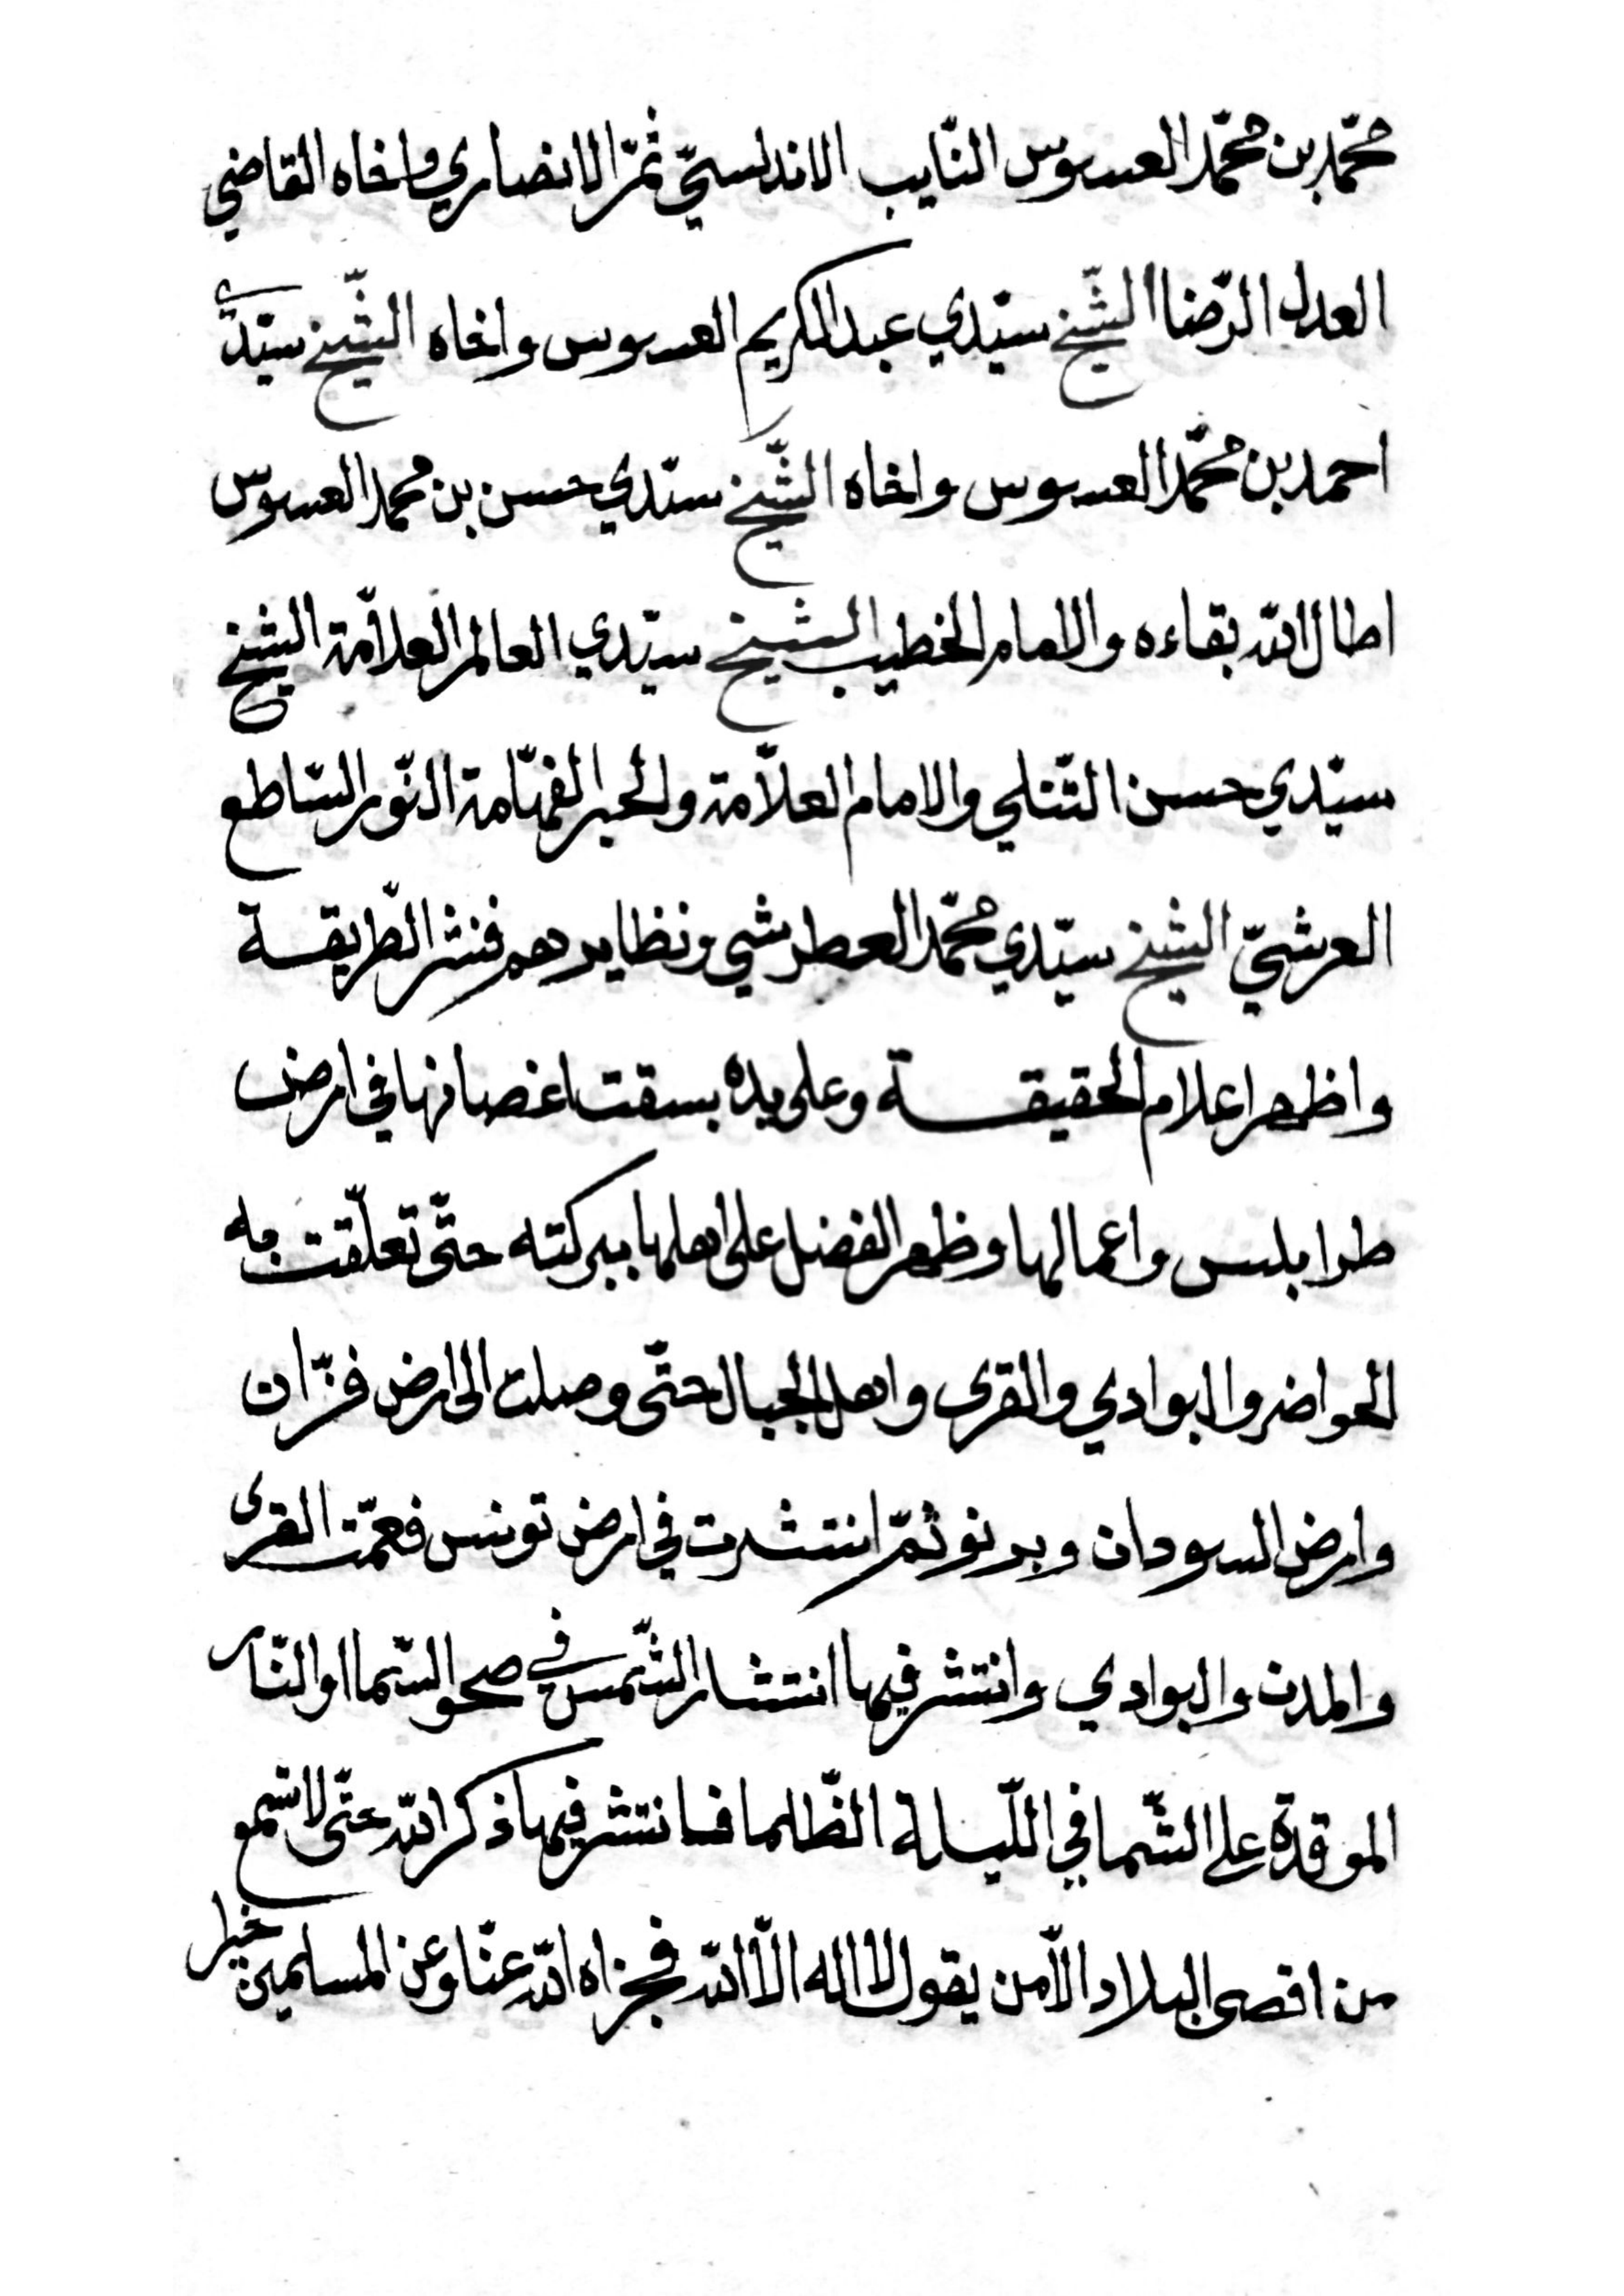 محمّد بن محمّد العسوس النّايب الاندلسيّ ثمّ الانصاري واخاه القاضي
العدل الرّضا الشّيخ سيّدي عبد الكريم العسوس واخاه الشّيخ سيّدي
احمد بن محمّد العسوس واخاه الشّيخ سيّدي حسن بن محمد العسوس
اطال الله بقاءه والامام الخطيب الشيخ سيّدي العالم العلامّة الشيخ
سيّدي حسن والامام العلاّمة والحبر الفهّامة النّور السّاطع
العرشيّ الشيخ سيّدي محمّد العطرشي ونظايرهم فنشر الطّريقة
واظهر اعلام الحقيقة وعلى يده بسقت اغصانها في ارض
طرابلس واعمالها وظهر الفضل على اهلها ببركته حتّى تعلّقت به
الحواضر والبوادي والقرى واهل الجبال حتّى وصلت الى ارض فزّان
وارض السودان وبرنو ثمّ انتشرت في ارض تونس فعمّت القرى
والمدن والبوادي وانتشر فيها انتشار الشّمس في صحو السّما او النّار
الموقدة على الشّما في اللّيلة الظّلما فانتشر فيها ذكر الله حتّى لا تسمع
من اقصى البلاد الاّ من يقول لا اله الاّ الله فجزاه الله عنّا وعن المسلمين خيرا